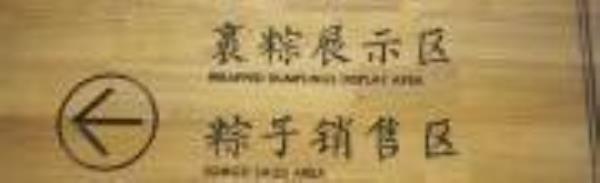 裹粽展示区
WRAPPED DUMPLINGS DISPLAY AREA
粽子销售区
SALES AREA